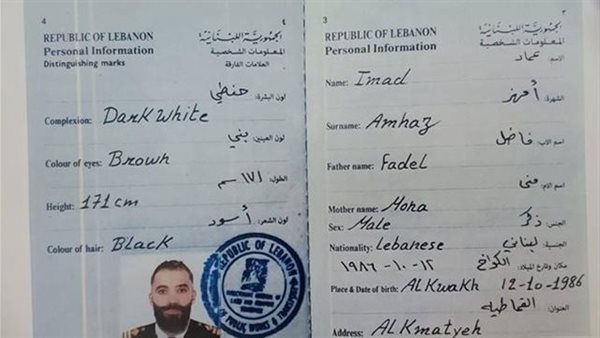 4 ٤
REPUBLIC OF LEBANON الجمهورية اللبنانية
Personal Information المعلومات الشخصية
Distinguishing marks العلامات الفارقة
لون البشرة: حنطي
Complexion: Dark White
لون العينين: بني
Colour of eyes: Brown
الطول: ١٧١ سم
Height: 171 cm
لون الشعر: أسود
Colour of hair: Black
REPUBLIC OF LEBANON
OF PUBLIC WORKS &
3 ٣
REPUBLIC OF LEBANON الجمهورية اللبنانية
Personal Information المعلومات الشخصية
الاسم: عماد
Name: Imad
الشهرة: أمهز
Surname: Amhaz
اسم الاب: فاضل
Father name: Fadel
اسم الام: منى
Mother name: Mona
الجنس: ذكر
Sex: Male
الجنسية: لبناني
Nationality: Lebanese
مكان وتاريخ الميلاد: الكواخ ١٢-١٠-١٩٨٦
Place & Date of birth: Al Kwakh 12-10-1986
العنوان: القماطية
Address: Al Kmatyeh